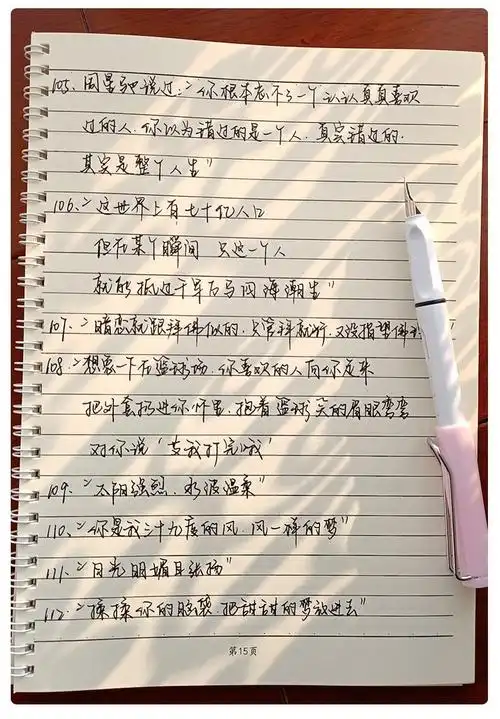 105、“周星驰说过:“你根本忘不了一个认认真真喜欢
过的人.你以为错过的是一个人.真实错过的.
其实是整个人生”
106、“这世界上有七十亿人口
但在某个瞬间 只这一个人
就能抵过千军万马四海潮生”
107、“暗恋就跟拜佛似的.只管拜就行.又没指望佛
108、“想象一下在篮球场.你喜欢的人向你走来
把外套扔进你怀里.抱着篮球笑的眉眼弯弯
对你说‘等我打完哦’
109、“太阳强烈.水波温柔”
110、“你是我三十九度的风.风一样的梦”
111、“目光明媚且张扬”
112、“揉揉你的脑袋.把甜甜的梦放进去”
第15页